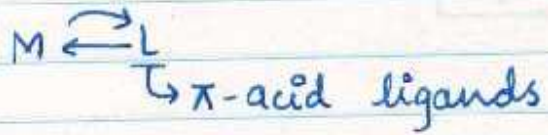 M ⇄ L
↳ π-acid ligands